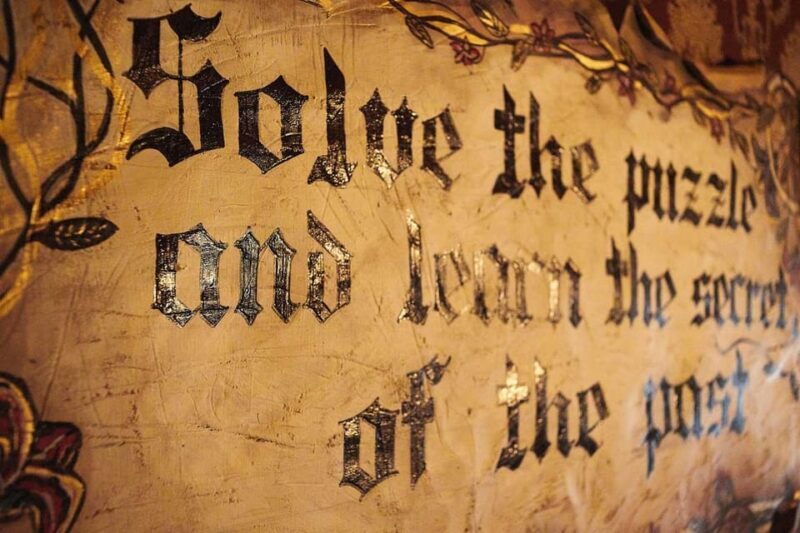 Solve the puzzle
and learn the secret
of the past